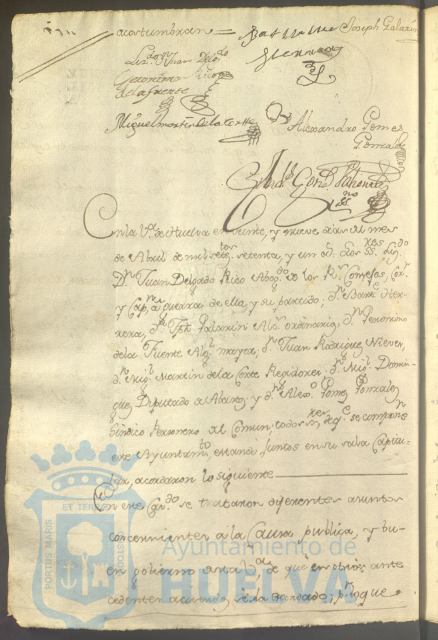 acostumbran =
Joseph Palazin
Herrera
de la fuente
Miguel Martin de la Corte
Alexandro Gomez
Gonzalez
En la Vª de Huelva en veinte, y nueve dias del mes
de Abril de mil setos setenta, y un as. los SSres Lizdo
Dn Juan Delgado Rico Abogdo de los Rs Consejos, Corr
y Capn a guerra de ella, y su partido, Dn Barte Her
rera, Dn Jph Palazin Als ordinarios, Dn Geronimo
de la Fuente Algl mayor, Dn Juan Rodriguez Nieves,
Dn Migl Martin de la Corte Regidores, Dn Migl Domin
guez Diputado de Abastos, y Dn Alexo Gomez Gonzalez
Sindico Personero del Comun, todos de qe se compone
este Ayuntamto estando juntos en su sala Capitu
lar, acordaron lo siguiente
En este Cavdo se trataron diferentes asuntos
concernientes a la Causa publica, y bu
en govierno de que en otros ante
cedentes acordado; por lo que
PORTUS MARIS
ET TERRAE
CUSTODIA
Ayuntamiento de
HUELVA